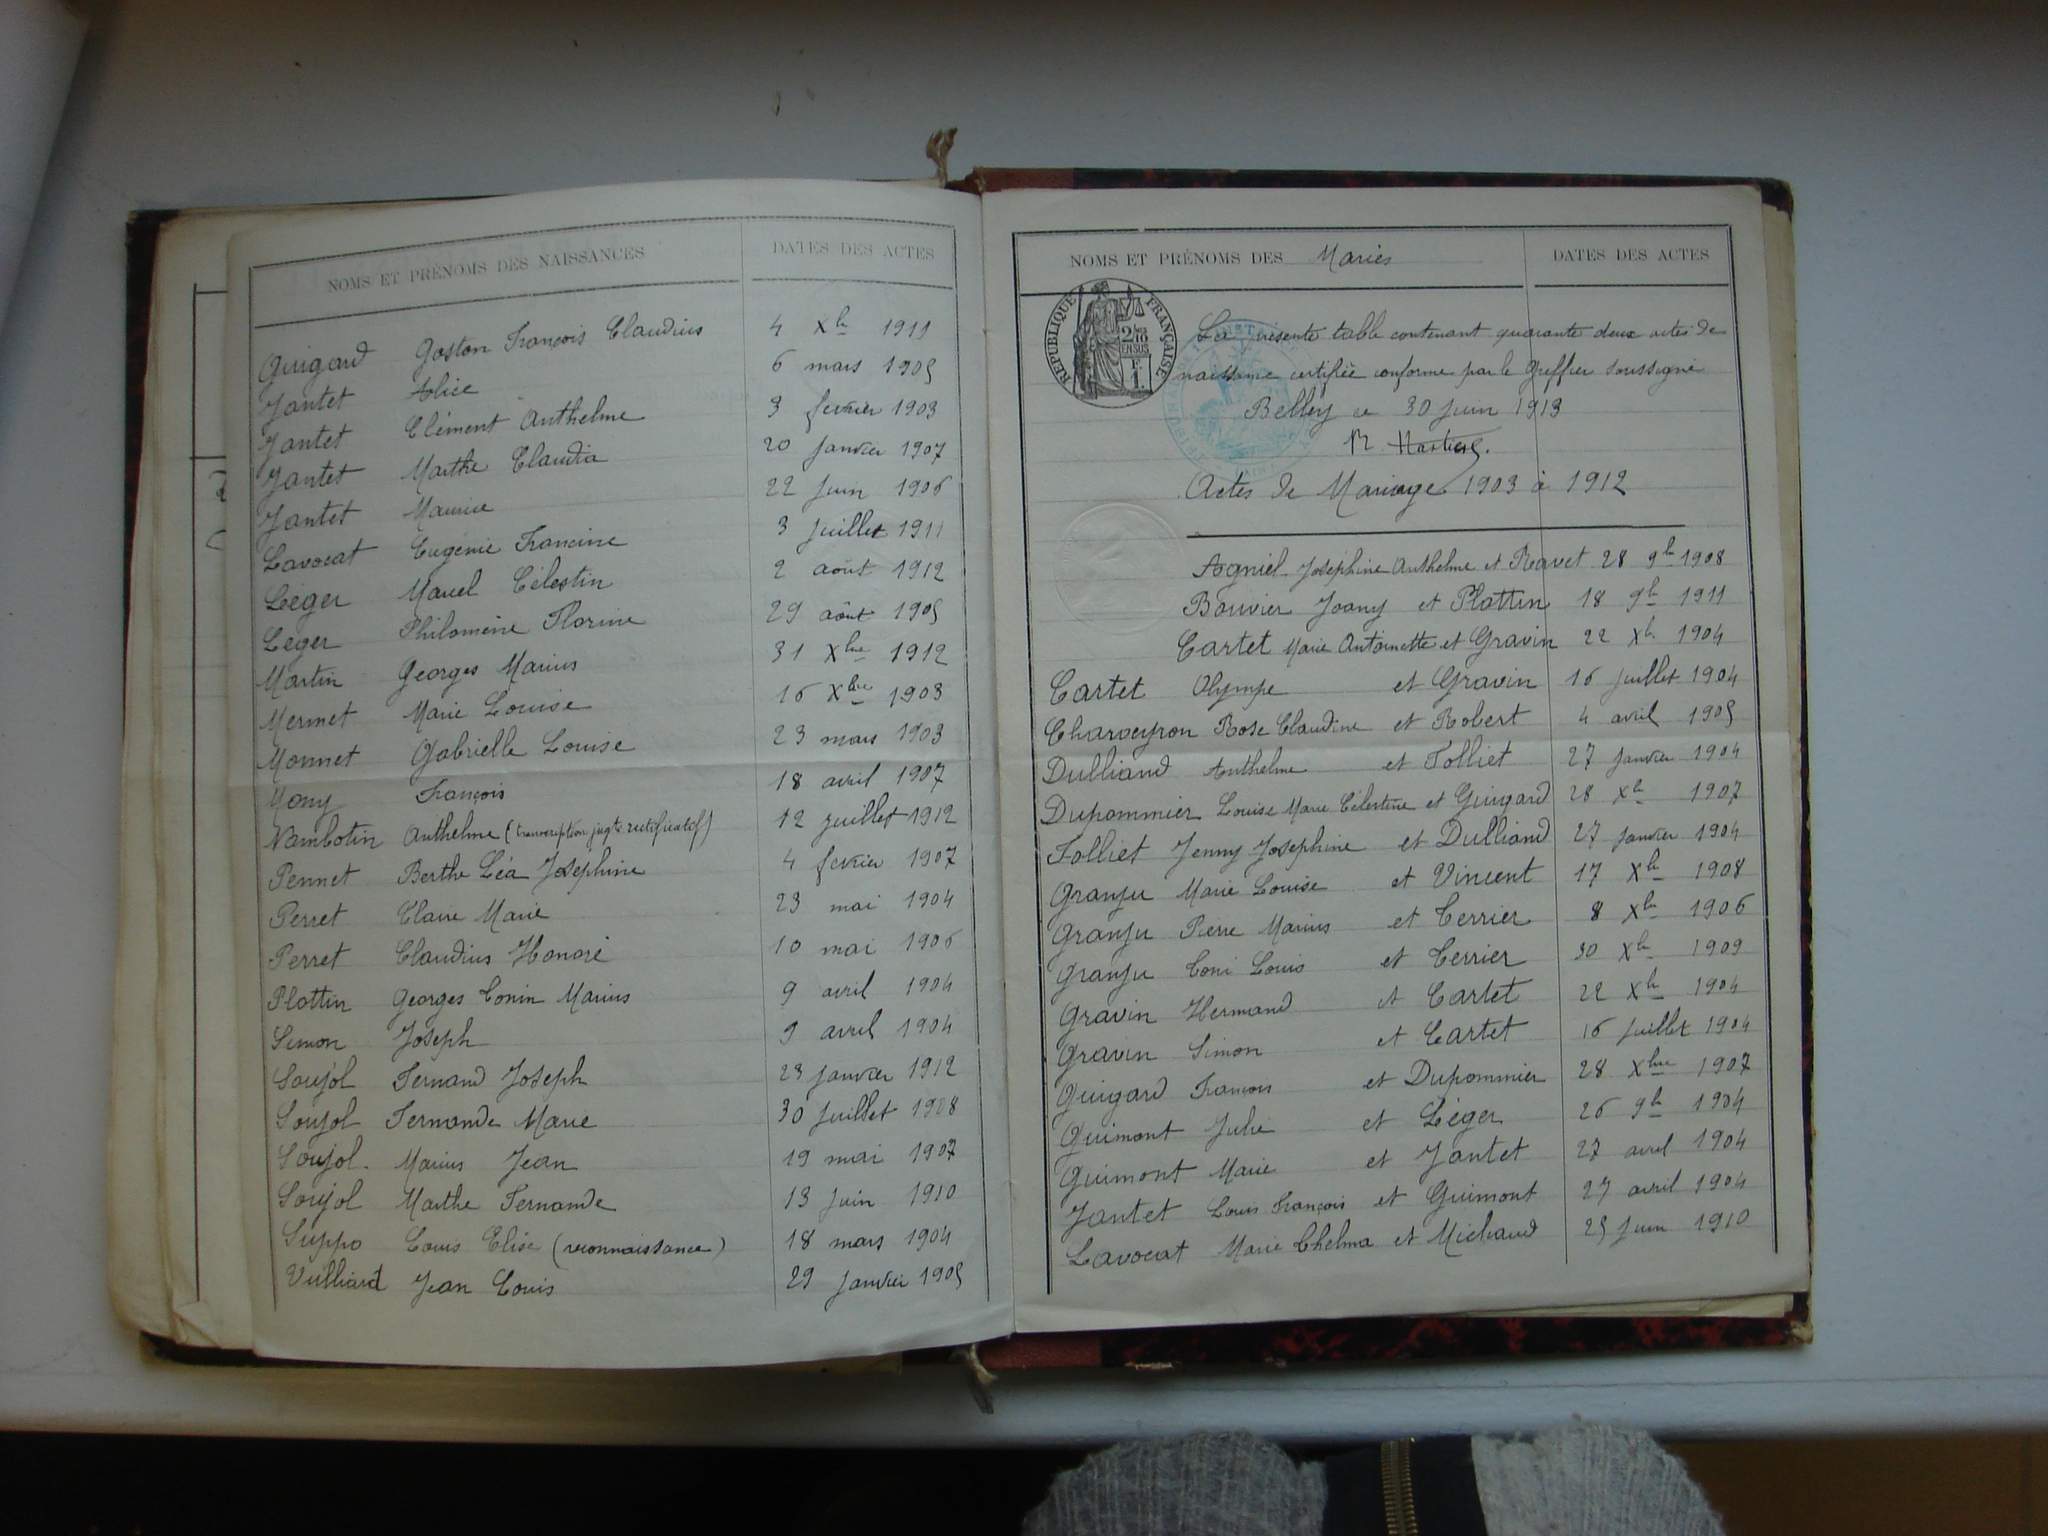 NOMS ET PRÉNOMS DES NAISSANCES DATES DES ACTES
Guigard Gaston François Claudius 4 Xbre 1911
Jantet Alice 6 mars 1905
Jantet Clément Anthelme 3 fevrier 1903
Jantet Marthe Claudia 20 janvier 1907
Jantet Maurice 22 juin 1906
Lavocat Eugénie Francine 3 juillet 1911
Léger Marcel Célestin 2 août 1912
Léger Philomène Florine 29 août 1905
Martin Georges Marius 31 Xbre 1912
Mermet Marie Louise 16 Xbre 1903
Monnet Gabrielle Louise 23 mars 1903
Mony François 18 avril 1907
Nambotin Anthelme (transcription jugt rectificatif) 12 juillet 1912
Pennet Berthe Léa Joséphine 4 fevrier 1907
Perret Claire Marie 23 mai 1904
Perret Claudius Honoré 10 mai 1906
Plattin Georges Tonin Marius 9 avril 1904
Simon Joseph 9 avril 1904
Soujol Fernand Joseph 23 janvier 1912
Soujol Fernande Marie 30 juillet 1908
Soujol Marius Jean 19 mai 1907
Soujol Marthe Fernande 13 juin 1910
Suppo Louis Elise (reconnaissance) 18 mars 1904
Vulliard Jean Louis 29 janvier 1905
NOMS ET PRÉNOMS DES Mariés DATES DES ACTES
RÉPUBLIQUE FRANÇAISE
2/10 EN SUS
1 F.
La présente table contenant quarante deux actes de
naissance certifiée conforme par le Greffier soussigné
Belley ce 30 juin 1913
Actes de Mariage 1903 à 1912
Agniel Joséphine Anthelme et Ravet 28 9bre 1908
Bouvier Joany et Plattin 18 9bre 1911
Cartet Marie Antoinette et Gravin 22 Xbre 1904
Cartet Olympe et Gravin 16 juillet 1904
Charveyron Rose Claudine et Robert 4 avril 1905
Dulliand Anthelme et Folliet 27 janvier 1904
Dupommier Louise Marie Célestine et Guigard 28 Xbre 1907
Folliet Jenny Joséphine et Dulliand 27 janvier 1904
Granju Marie Louise et Vincent 17 Xbre 1908
Granju Pierre Marius et Terrier 8 Xbre 1906
Granju Toni Louis et Terrier 30 Xbre 1909
Gravin Hermand et Cartet 22 Xbre 1904
Gravin Simon et Cartet 16 juillet 1904
Guigard François et Dupommier 28 Xbre 1907
Guimont Julie et Léger 26 9bre 1904
Guimont Marie et Jantet 27 avril 1904
Jantet Louis François et Guimont 27 avril 1904
Lavocat Marie Thelma et Michaud 25 juin 1910